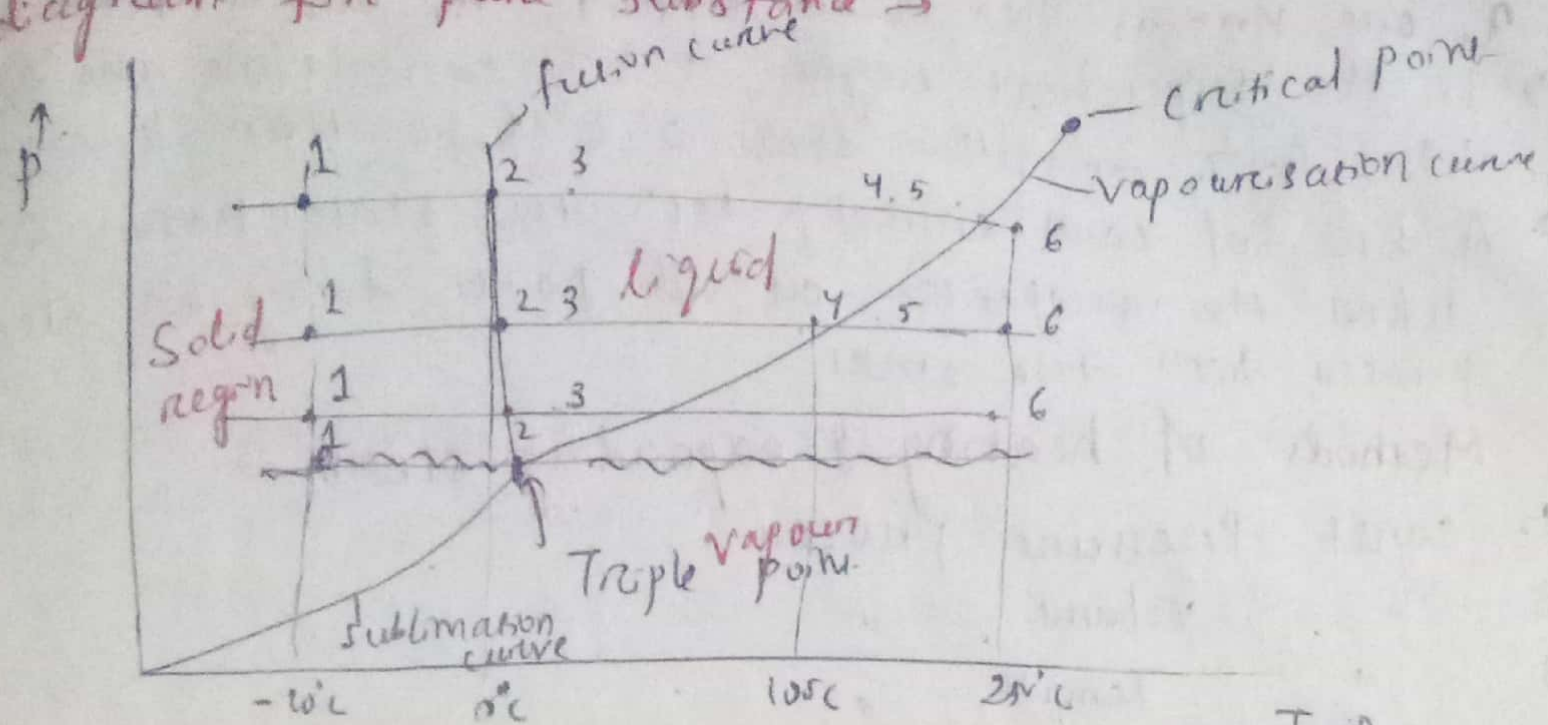 diagram for pure substance →
fusion curve
critical point
vapourisation curve
P ↑
1 2 3 4, 5
6
liquid
1 2 3 4 5 6
Solid
region
1 3 6
1 2
Triple point
vapour
sublimation
curve
-10°C 0°C 105C
T